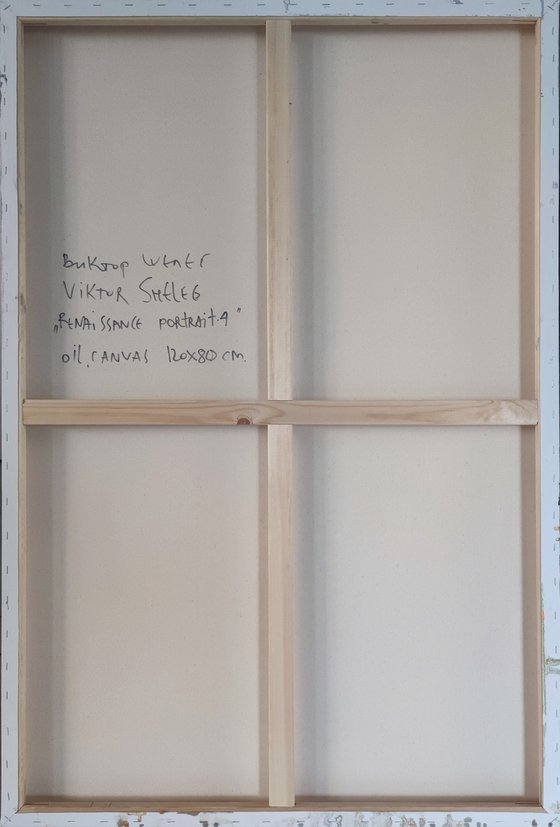 Виктор Шелег
VIKTOR SHELEG
„RENAISSANCE PORTRAIT.4"
OIL, CANVAS 120x80 cm.